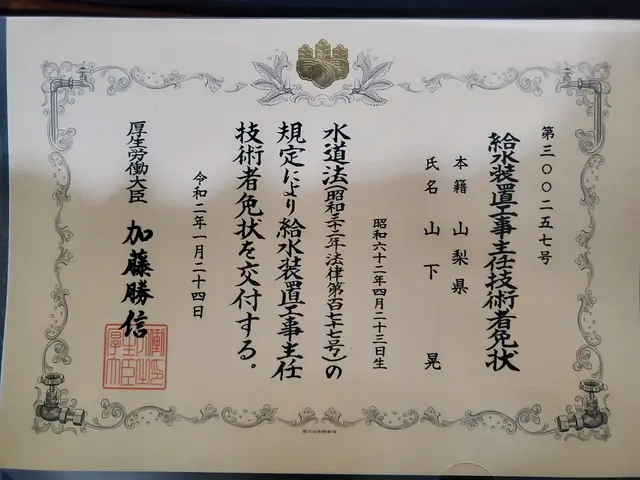 第三〇〇二五七号
給水装置工事主任技術者免状
本籍 山梨県
氏名 山下 晃
昭和六十二年四月二十三日生
水道法(昭和三十二年法律第百七十七号)の
規定により給水装置工事主任
技術者免状を交付する。
令和二年一月二十四日
厚生労働大臣 加藤勝信